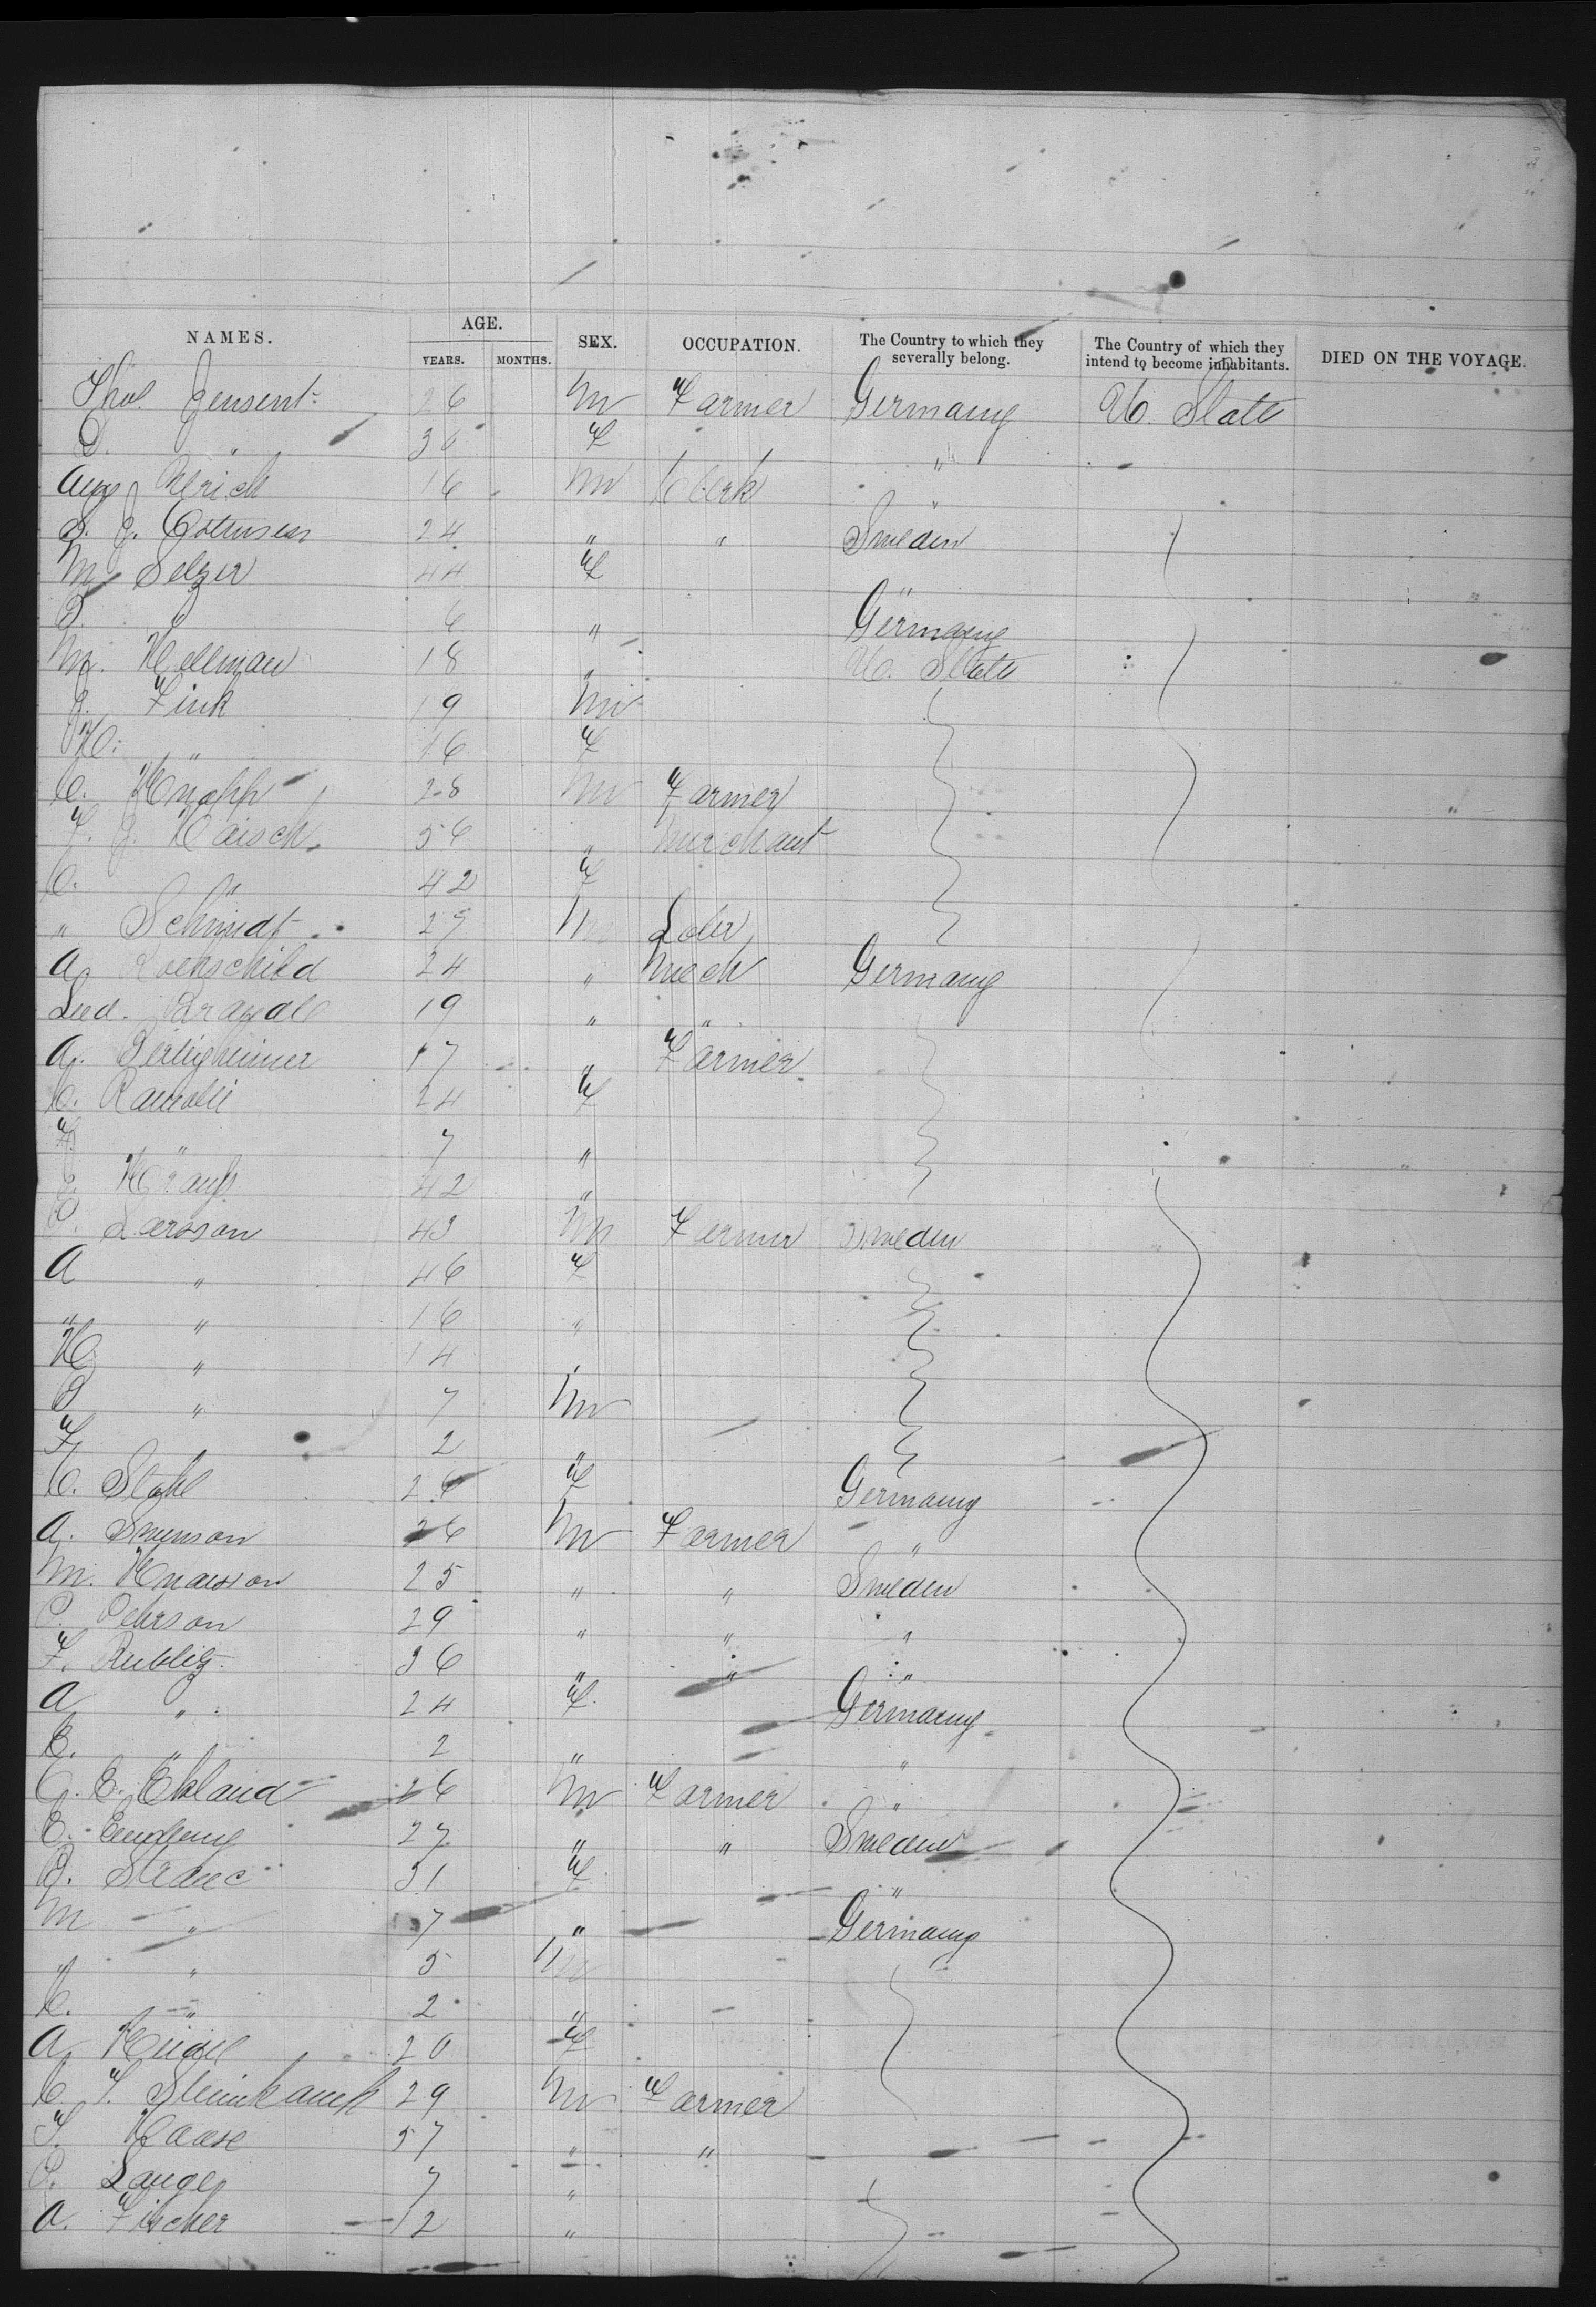 NAMES. AGE. SEX. OCCUPATION. The Country to which they severally belong. The Country of which they intend to become inhabitants. DIED ON THE VOYAGE.
YEARS. MONTHS.
Jensent 26 M Farmer Germany U. State
D. " 30 F "
Aug Ulrich 16 M Clerk "
S. J. 24 " " Sweden
M Selzer 44 F "
6 " Germany
M. Hellman 18 " U. State
J. Fink 19 M
H. " 16 F
C. Knapp 28 M Farmer
F. J. Kaisch 56 " Merchant
C. " 42 F
" Schmidt 29 M
A Rothschild 24 " Mech Germany
Lud. 19 " "
A. 17 " Farmer
C. 24 F
F " 7 "
Krauss 42 "
P. Larsson 43 M Farmer Sweden
A " 46 F
" " 16 "
H " 14 "
P " 7 M
F 2 "
C. Stahl 26 F Germany
A. Swenson 26 M Farmer "
M. 25 " " Sweden
P. Pehrson 29 " " "
F. Rublitz 36 " " "
A " 24 F Germany
E. " 2 " "
C. E. Ekland 26 M Farmer "
E. 27 " " Sweden
31 F "
M " 7 " Germany
" " 5 M
C. " 2 "
A 20 F
C. F. Steinkamp 29 M Farmer
F. Haase 57 " "
Lange 7 "
A. Fischer 12 "